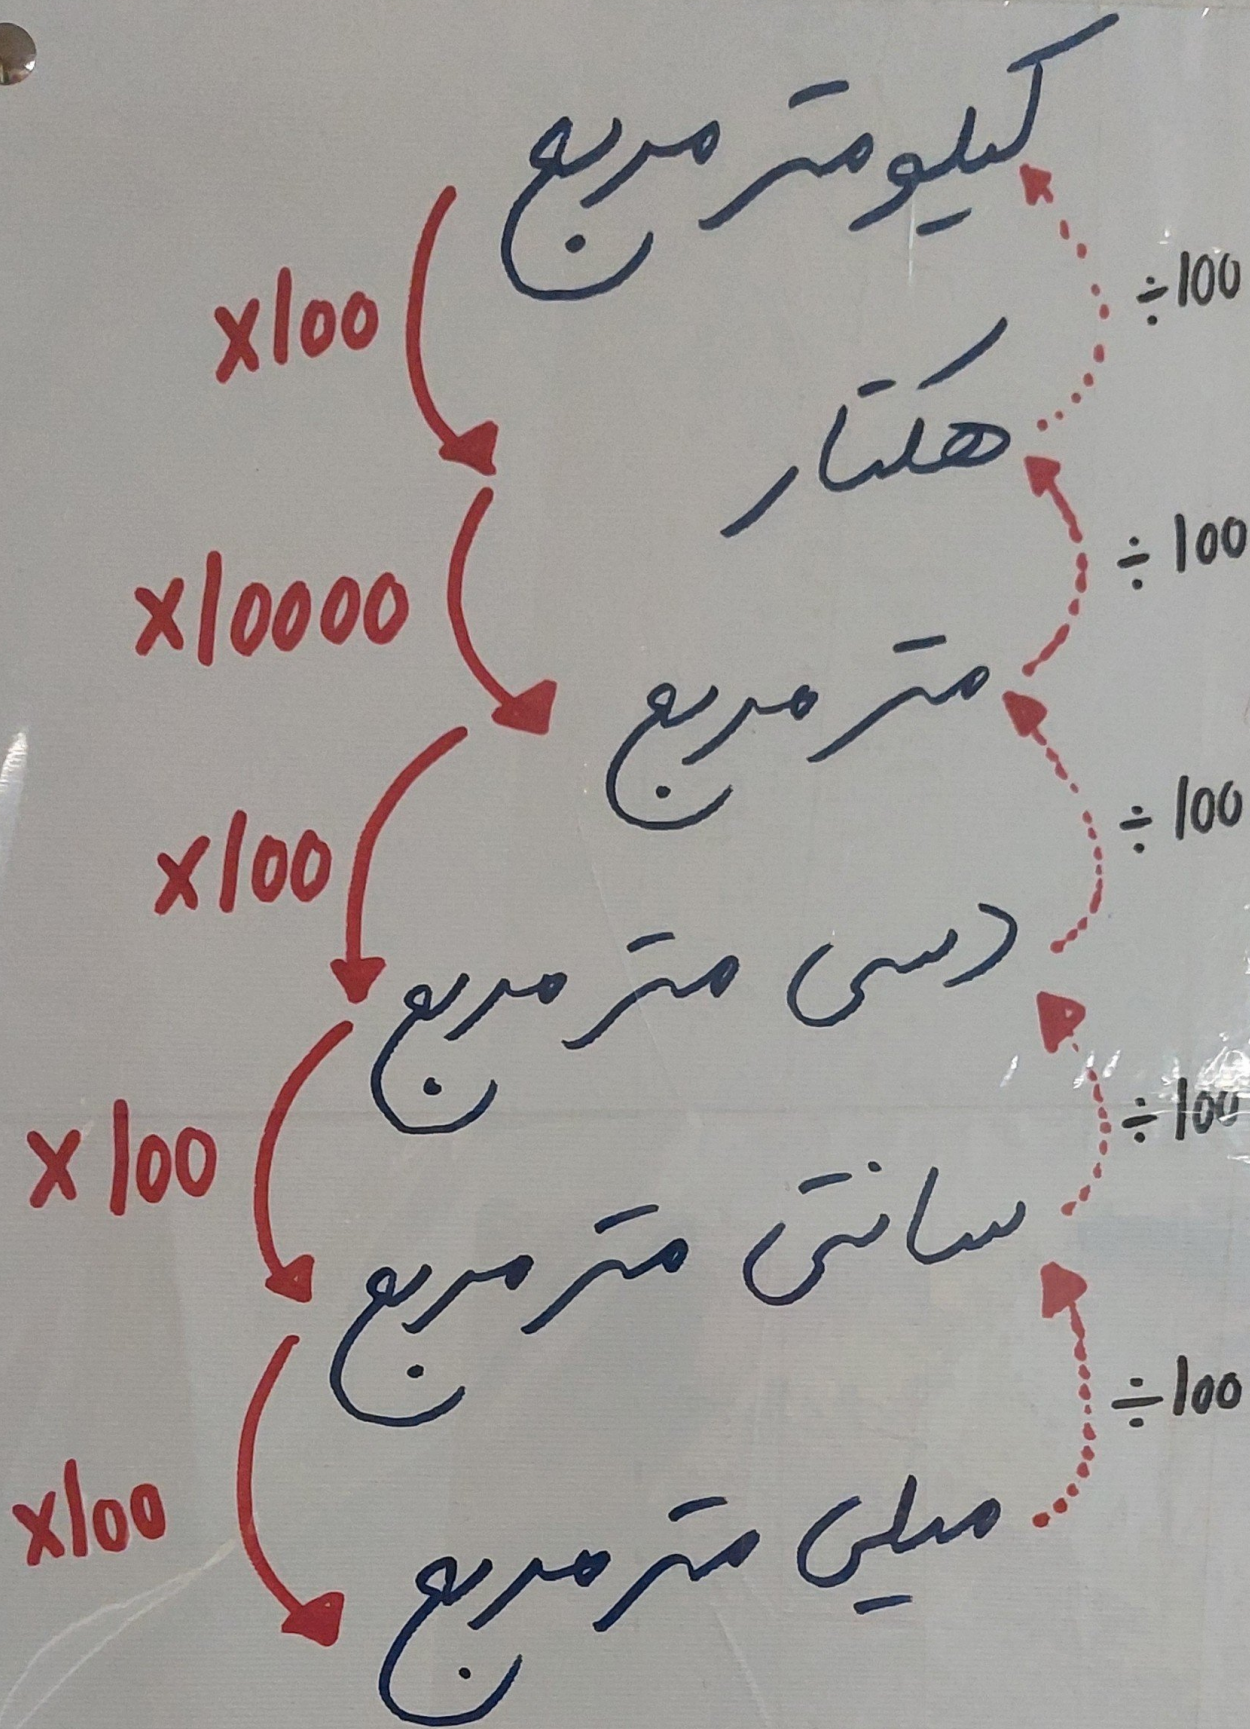 کیلومتر مربع
×100
÷100
هکتار
×10000
÷100
متر مربع
×100
÷100
دسی متر مربع
×100
÷100
سانتی متر مربع
×100
÷100
میلی متر مربع